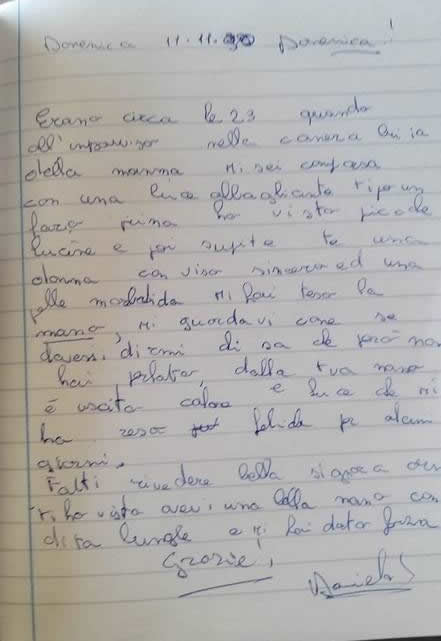 Domenica 11.11. Domenica!
Erano circa le 23 quando
all'improvviso nella camera
della mamma Mi sei comparsa
con una luce abbagliante tipo un
faro prima ho visto picole
lucine e poi subito te una
donna con viso sincero ed una
pelle morbida Mi hai teso la
mano, Mi guardavi come se
dovessi dirmi di sa che però non
hai parlato, dalla tua mano
è uscito calore e luce che Mi
ha reso felide per alcuni
giorni.
Fatti rivedere bella signora
ti ho vista avevi una bella mano con
dita lunghe e Mi hai dato forza
Grazie!
Daniela